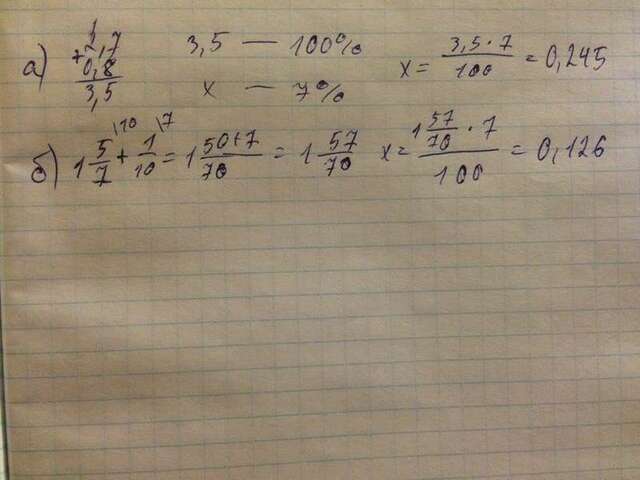 а) 1
+2,7
0,8
3,5
3,5 — 100%
x — 7%
x = 3,5 · 7 / 100 = 0,245
б) 1 5/7 \10 + 1/10 \7 = 1 50+7/70 = 1 57/70 x = 1 57/70 · 7 / 100 = 0,126